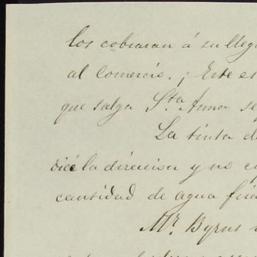 los cobraran á su lleg
al comercio. ¡Este es
que salga Sta. Anna se
La tinta d
dice la direccion y no c
cantidad de agua fi
Mr. Byrns